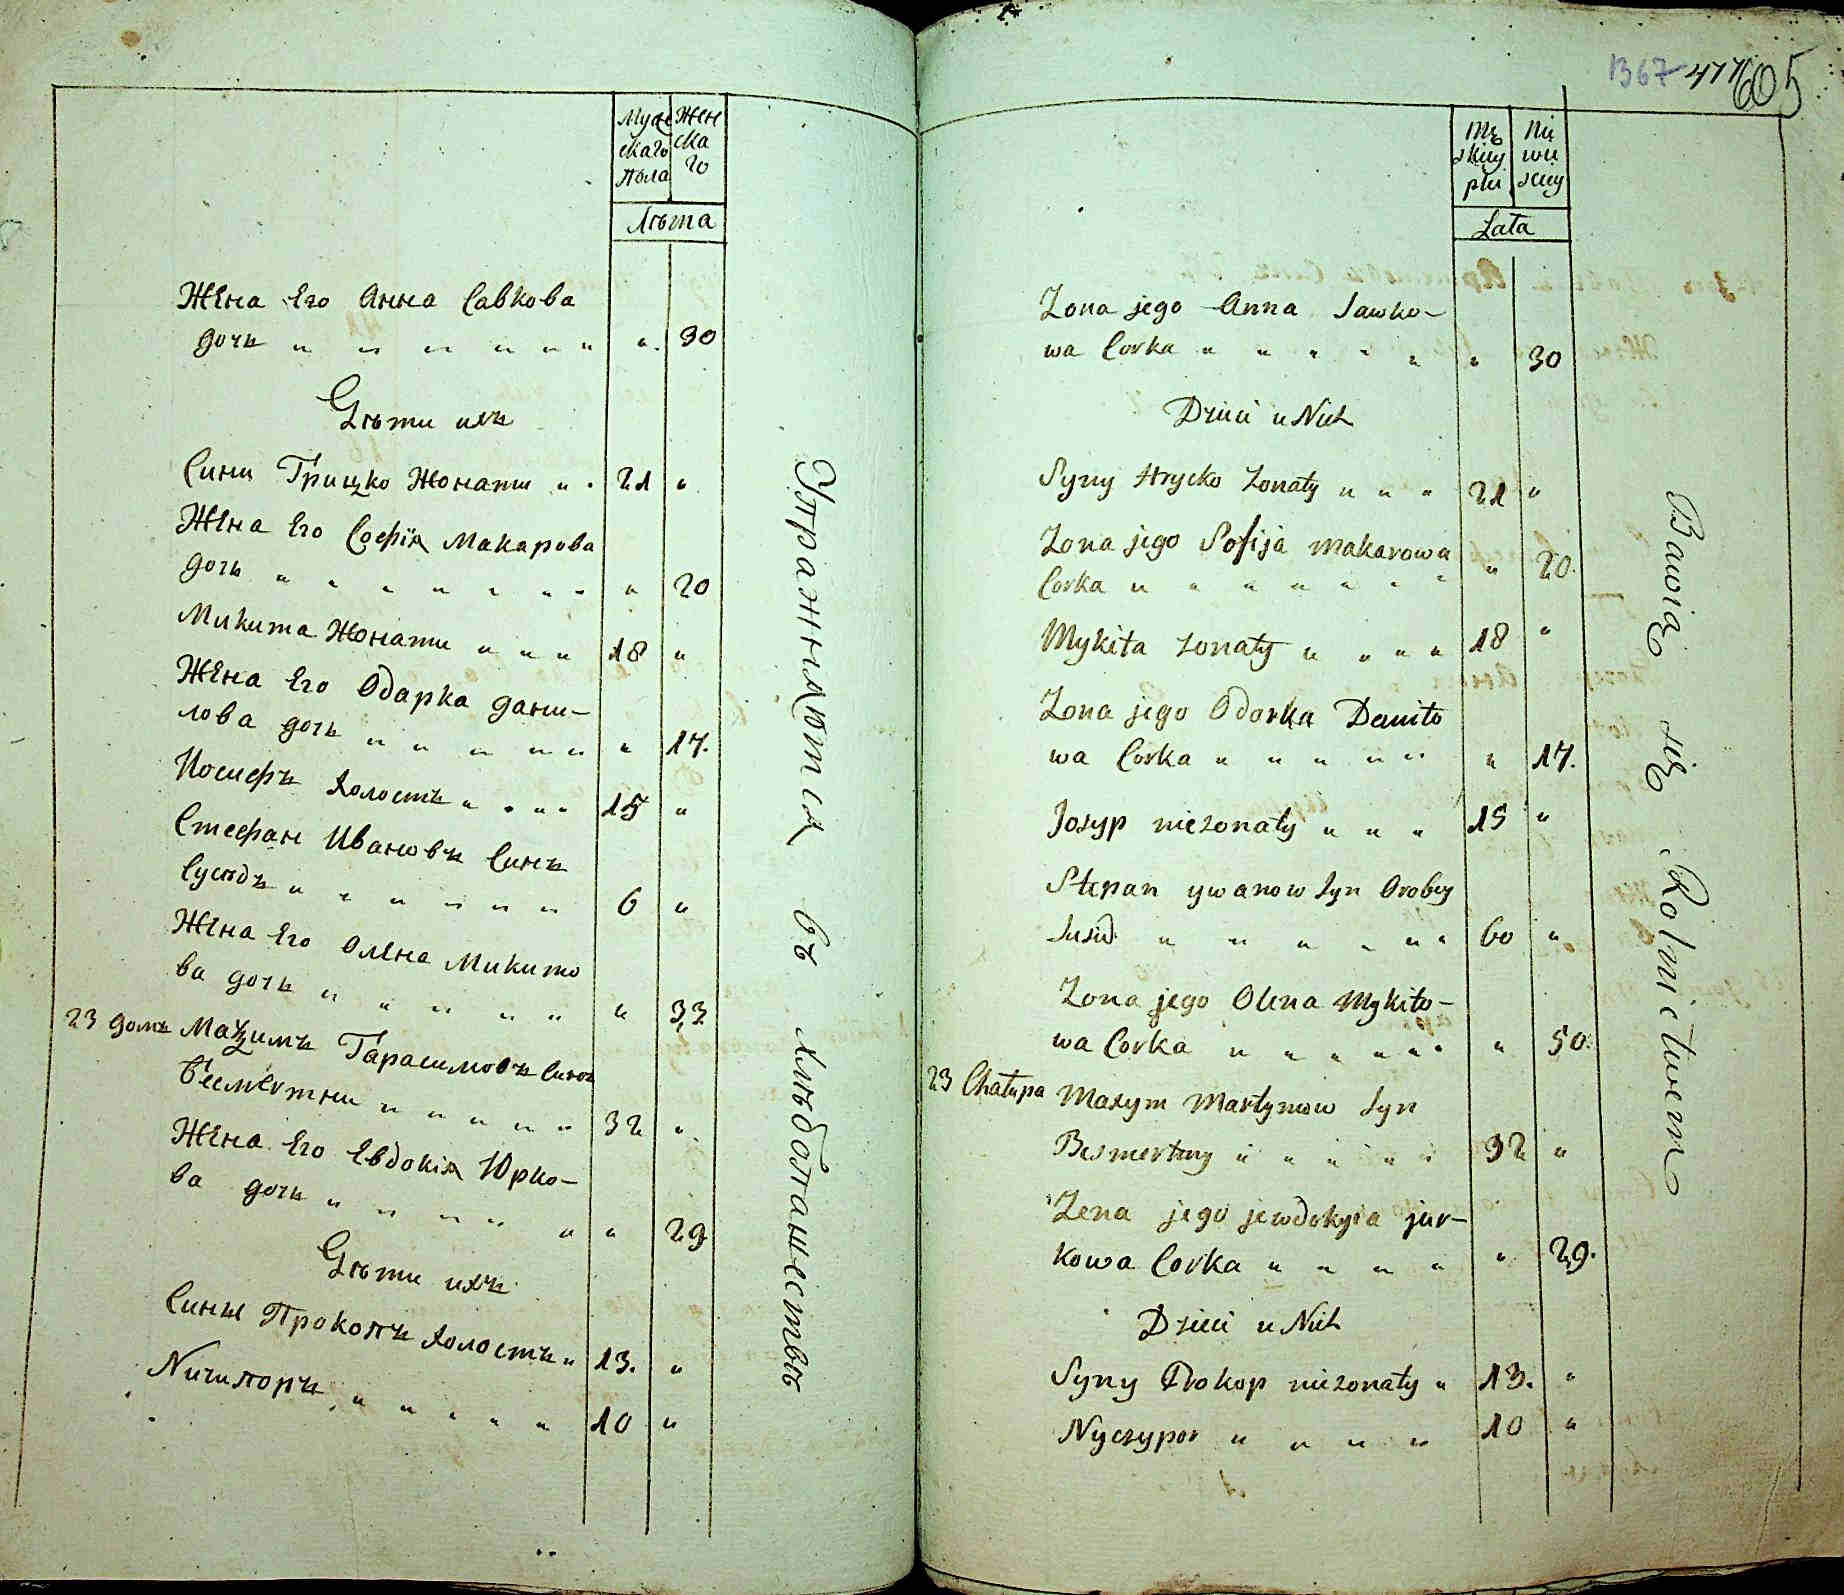 Муж Жен
скаго ска
пола го
Лѣта
Жена Его Анна Савкова
дочь " " " " " " " " 30
Дѣти ихъ
Сини Грицко Жонати " " 21 "
Жена Его Софія Макарова
дочь " " " " " " " " 20
Микита Жонати " " " 18 "
Жена Его Одарка Дани-
лова дочь " " " " " " 17.
Иосифъ холостъ " " " " 15 "
Стефан Ивановъ Синъ
Сусѣдъ " " " " " " 6 "
Жена Его Олена Микито
ва дочь " " " " " " 33
23 домъ Мазимъ Гарасимовъ Синъ
Бесмертни " " " " " 32 "
Жена Его Евдокія Юрко-
ва дочь " " " " " " 29
Дѣти ихъ
Сины Прокопъ холостъ " 13. "
Ничипоръ " " " " " 10 "
Упражняются въ хлѣбопашествѣ
1367 605
Mę Nie
skiey wie
płci sciey
Lata
Zona jego Anna Sawko-
wa Corka " " " " " " 30
Dzieci u Nich
Syny Hrycko zonaty " " " 21 "
Zona jego Sofija Makarowa
Corka " " " " " " " " 20.
Mykita zonaty " " " " 18 "
Zona jego Odarka Daniło
wa Corka " " " " " " 17.
Josyp niezonaty " " " 15 "
Stepan ywanow Syn Orobey
Susid " " " " " " 60 "
Zona jego Olena Mykito-
wa Corka " " " " " " " 50.
23 Chałupa Maxym Martynow Syn
Besmertny " " " " " 32 "
Zena jego jewdokyia jur-
kowa Corka " " " " " 29.
Dzieci u Nich
Syny Prokop niezonaty " 13. "
Nyczypor " " " " 10 "
Bawią się Rolnictwem